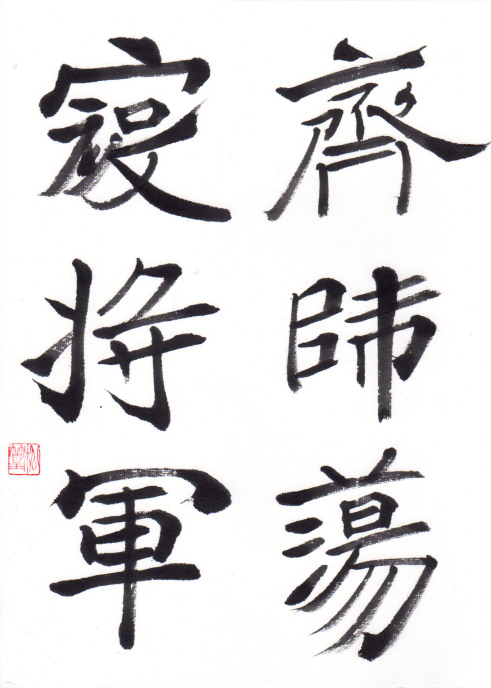 齊師蕩
寇將軍